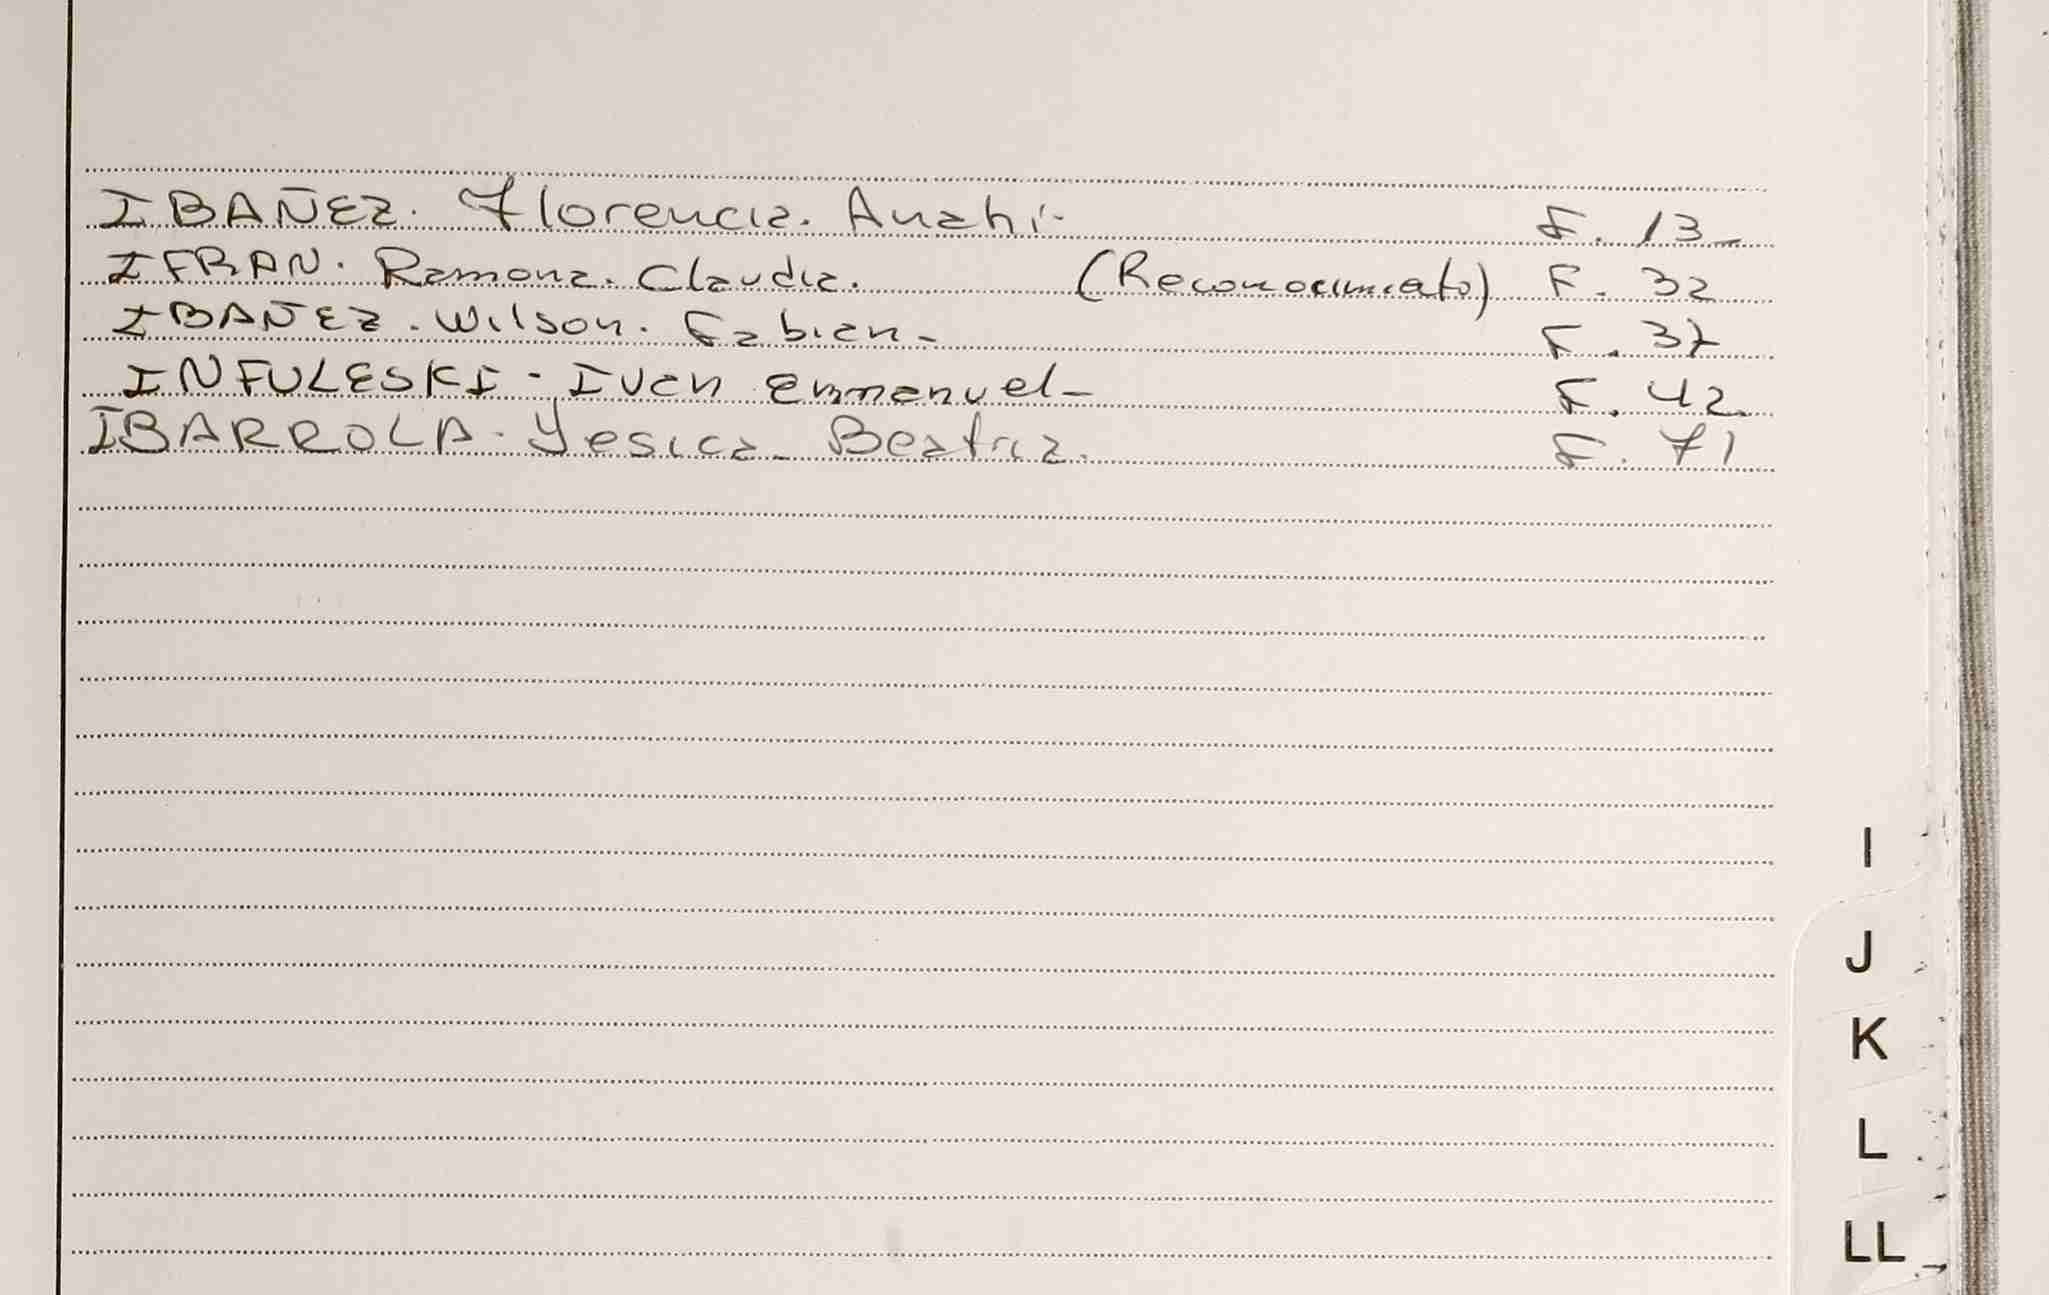 IBAÑEZ. Florencia. Anahi-
F. 13-
IFRAN. Ramona. Claudia. (Reconocimiento) F. 32
IBAÑEZ. Wilson. Fabian- F. 37
INFULESKI - Ivan Emmanuel- F. 42.
IBARROLA. Yesica- Beatriz. F. 71
I
J
K
L
LL